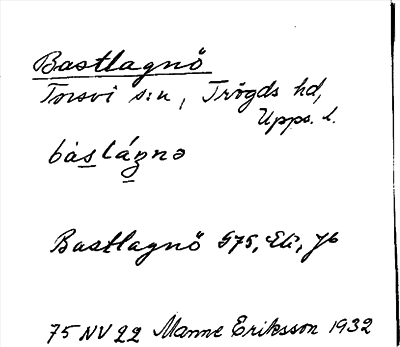 Bastlagnö
Torsvi s:n, Trögds hd,
Upps. l.
bàs láŋnə
Bastlagnö G75, Ek, Jb
75 NV 22 Manne Eriksson 1932